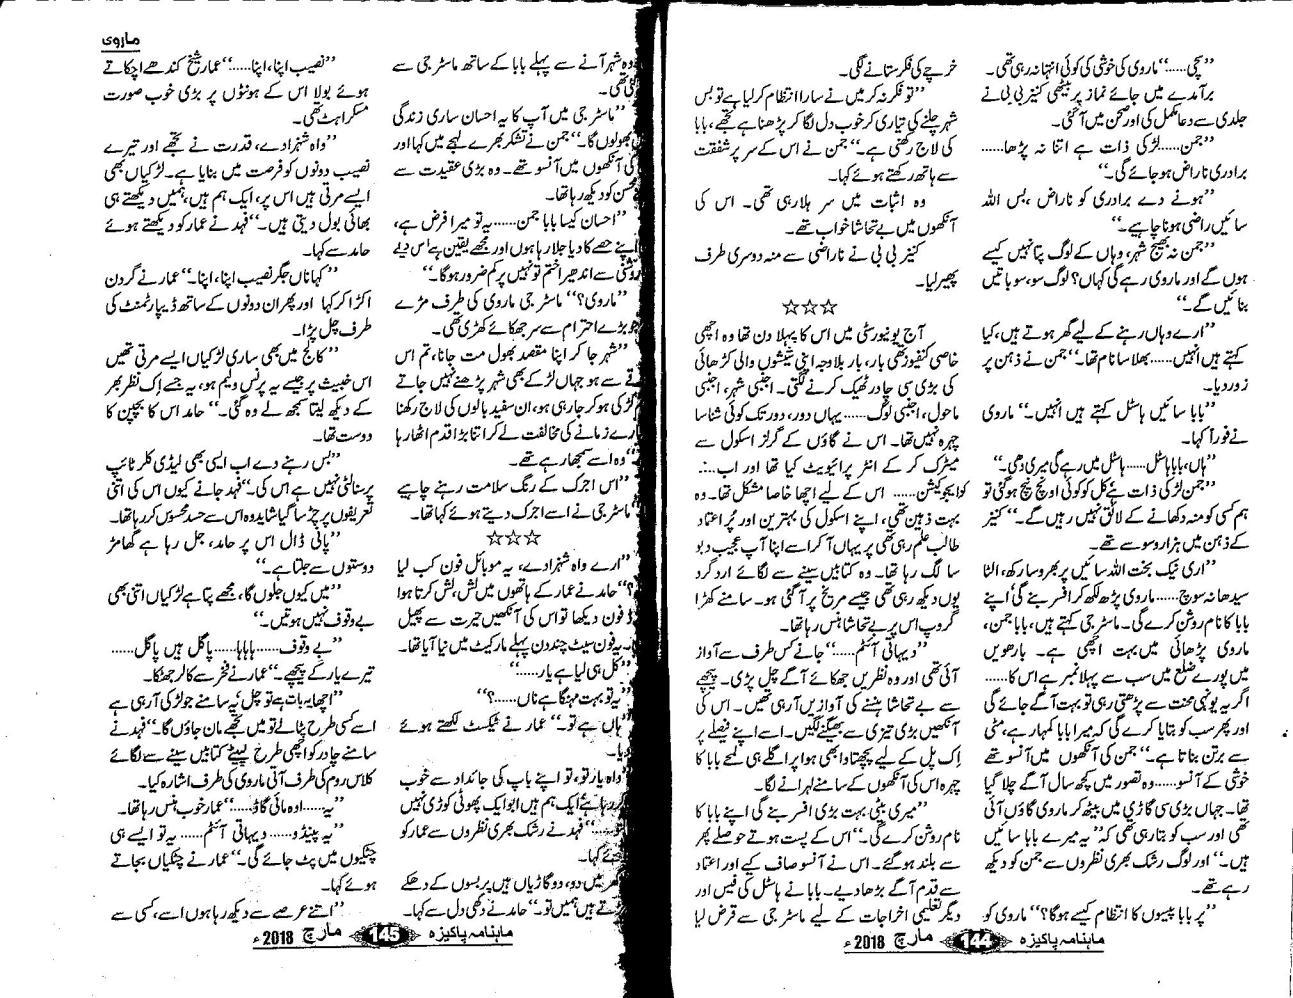 ”سچی......“ ماروی کی خوشی کی کوئی انتہا نہ رہی تھی۔
برآمدے میں جائے نماز پر بیٹھی کنیز بی بی نے
جلدی سے دعا مکمل کی اور صحن میں آ گئی۔
”جمن...... لڑکی ذات ہے اتنا نہ پڑھا......
برادری ناراض ہو جائے گی۔“
”ہونے دے برادری کو ناراض، بس اللہ
سائیں راضی ہونا چاہیے۔“
”جمن نہ بھیج شہر، وہاں کے لوگ پتا نہیں کیسے
ہوں گے اور ماروی رہے گی کہاں؟ لوگ سو، سو باتیں
بنائیں گے۔“
”ارے وہاں رہنے کے لیے گھر ہوتے ہیں، کیا
کہتے ہیں انہیں...... بھلا سا نام تھا۔“ جمن نے ذہن پر
زور دیا۔
”بابا سائیں ہاسٹل کہتے ہیں انہیں۔“ ماروی
نے فوراً کہا۔
”ہاں، بابا ہاسٹل...... ہاسٹل میں رہے گی میری دھی۔“
”جمن لڑکی ذات ہے کل کو کوئی اونچ نیچ ہو گئی تو
ہم کسی کو منہ دکھانے کے لائق نہیں رہیں گے۔“ کنیز
کے ذہن میں ہزار وسوسے تھے۔
”اری نیک بخت اللہ سائیں پر بھروسا رکھ، الٹا
سیدھا نہ سوچ...... ماروی پڑھ لکھ کر افسر بنے گی اپنے
بابا کا نام روشن کرے گی۔ ماسٹر جی کہتے ہیں، بابا جمن،
ماروی پڑھائی میں بہت اچھی ہے۔ بارھویں
میں پورے ضلع میں سب سے پہلا نمبر ہے اس کا......
اگر یہ یونہی محنت سے پڑھتی رہی تو بہت آگے جائے گی
اور پھر سب کو بتایا کرے گی کہ میرا بابا کمہار ہے، مٹی
سے برتن بناتا ہے۔“ جمن کی آنکھوں میں آنسو تھے
خوشی کے آنسو...... وہ تصور میں کچھ سال آگے چلا گیا
تھا۔ جہاں بڑی سی گاڑی میں بیٹھ کر ماروی گاؤں آئی
تھی اور سب کو بتا رہی تھی کہ ”یہ میرے بابا سائیں
ہیں۔“ اور لوگ رشک بھری نظروں سے جمن کو دیکھ
رہے تھے۔
”پر بابا پیسوں کا انتظام کیسے ہوگا؟“ ماروی کو
خرچے کی فکر ستانے لگی۔
”تو فکر نہ کر میں نے سارا انتظام کر لیا ہے تو بس
شہر چلنے کی تیاری کر خوب دل لگا کر پڑھنا ہے تجھے، بابا
کی لاج رکھنی ہے۔“ جمن نے اس کے سر پر شفقت
سے ہاتھ رکھتے ہوئے کہا۔
وہ اثبات میں سر ہلا رہی تھی۔ اس کی
آنکھوں میں بے تحاشا خواب تھے۔
کنیز بی بی نے ناراضی سے منہ دوسری طرف
پھیر لیا۔
☆☆☆
آج یونیورسٹی میں اس کا پہلا دن تھا وہ اچھی
خاصی کنفیوز تھی بار، بار بلاوجہ اپنی شیشوں والی کڑھائی
کی بڑی سی چادر ٹھیک کرنے لگتی۔ اجنبی شہر، اجنبی
ماحول، اجنبی لوگ...... یہاں دور، دور تک کوئی شناسا
چہرہ نہیں تھا۔ اس نے گاؤں کے گرلز اسکول سے
میٹرک کر کے انٹر پرائیویٹ کیا تھا اور اب...
کو ایجوکیشن...... اس کے لیے اچھا خاصا مشکل تھا۔ وہ
بہت ذہین تھی، اپنے اسکول کی بہترین اور پُر اعتماد
طالب علم رہی تھی پر یہاں آ کر اسے اپنا آپ عجیب دبو
سا لگ رہا تھا۔ وہ کتابیں سینے سے لگائے ارد گرد
یوں دیکھ رہی تھی جیسے مریخ پر آ گئی ہو۔ سامنے کھڑا
گروپ اس پر بے تحاشا ہنس رہا تھا۔
”دیہاتی آئٹم......“ جانے کس طرف سے آواز
آئی تھی اور وہ نظریں جھکائے آگے چل پڑی۔ پیچھے
سے بے تحاشا ہنسنے کی آوازیں آ رہی تھیں۔ اس کی
آنکھیں بڑی تیزی سے بھیگنے لگیں۔ اسے اپنے فیصلے پر
اک پل کے لیے پچھتاوا بھی ہوا پر اگلے ہی لمحے بابا کا
چہرہ اس کی آنکھوں کے سامنے لہرانے لگا۔
”میری بیٹی بہت بڑی افسر بنے گی اپنے بابا کا
نام روشن کرے گی۔“ اس کے پست ہوتے حوصلے پھر
سے بلند ہو گئے۔ اس نے آنسو صاف کیے اور اعتماد
سے قدم آگے بڑھا دیے۔ بابا نے ہاسٹل کی فیس اور
دیگر تعلیمی اخراجات کے لیے ماسٹر جی سے قرض لیا
ماہنامہ پاکیزہ 144 مارچ 2018ء
ماروی
وہ شہر آنے سے پہلے بابا کے ساتھ ماسٹر جی سے
تھی۔
”ماسٹر جی میں آپ کا یہ احسان ساری زندگی
بھولوں گا۔“ جمن نے تشکر بھرے لہجے میں کہا اور
کی آنکھوں میں آنسو تھے۔ وہ بڑی عقیدت سے
محسن کو دیکھ رہا تھا۔
”احسان کیسا بابا جمن...... یہ تو میرا فرض ہے،
اپنے حصے کا دیا جلا رہا ہوں اور مجھے یقین ہے اس دیے
روشنی سے اندھیرا ختم تو نہیں پر کم ضرور ہوگا۔“
”ماروی؟“ ماسٹر جی ماروی کی طرف مڑے
جو بڑے احترام سے سر جھکائے کھڑی تھی۔
”شہر جا کر اپنا مقصد بھول مت جانا، تم اس
سے ہو جہاں لڑکے بھی شہر پڑھنے نہیں جاتے
لڑکی ہو کر جا رہی ہو، ان سفید بالوں کی لاج رکھنا
زمانے کی مخالفت لے کر اتنا بڑا قدم اٹھا رہا
“ وہ اسے سمجھا رہے تھے۔
”اس اجرک کے رنگ سلامت رہنے چاہیے
ماسٹر جی نے اسے اجرک دیتے ہوئے کہا تھا۔
☆☆☆
”ارے واہ شہزادے، یہ موبائل فون کب لیا
؟“ حامد نے عمار کے ہاتھوں میں لش، لش کرتا ہوا
فون دیکھا تو اس کی آنکھیں حیرت سے پھیل
یہ فون سیٹ چند دن پہلے مارکیٹ میں نیا آیا تھا۔
”کل ہی لیا ہے یار......“
”یہ تو بہت مہنگا ہے ناں......؟“
”ہاں ہے تو۔“ عمار نے ٹیکسٹ لکھتے ہوئے
”واہ یار تو، تو اپنے باپ کی جائداد سے خوب
کر رہا ہے ایک ہم ہیں ابو ایک پھوٹی کوڑی نہیں
......“ فہد نے رشک بھری نظروں سے عمار کو
کہا۔
گھر میں دو، دو گاڑیاں ہیں پر بسوں کے دھکے
ہیں ہمیں تو۔“ حامد نے دکھی دل سے کہا۔
”نصیب اپنا، اپنا......“ عمار شیخ کندھے اچکاتے
ہوئے بولا اس کے ہونٹوں پر بڑی خوب صورت
مسکراہٹ تھی۔
”واہ شہزادے، قدرت نے تجھے اور تیرے
نصیب دونوں کو فرصت میں بنایا ہے۔ لڑکیاں بھی
ایسے مرتی ہیں اس پر، ایک ہم ہیں، ہمیں دیکھتے ہی
بھائی بول دیتی ہیں۔“ فہد نے عمار کو دیکھتے ہوئے
حامد سے کہا۔
”کہا ناں جگر نصیب اپنا، اپنا۔“ عمار نے گردن
اکڑا کر کہا اور پھر ان دونوں کے ساتھ ڈیپارٹمنٹ کی
طرف چل پڑا۔
”کالج میں بھی ساری لڑکیاں ایسے مرتی تھیں
اس خبیث پر جیسے یہ پرنس ولیم ہو، یہ جسے اک نظر بھر
کے دیکھ لیتا سمجھ لے وہ گئی۔“ حامد اس کا بچپن کا
دوست تھا۔
”بس رہنے دے اب ایسی بھی لیڈی کلر ٹائپ
پرسنالٹی نہیں ہے اس کی۔“ فہد جانے کیوں اس کی اتنی
تعریفوں پر چڑ سا گیا شاید وہ اس سے حسد محسوس کر رہا تھا۔
”پانی ڈال اس پر حامد، جل رہا ہے گھامڑ
دوستوں سے جلتا ہے۔“
”میں کیوں جلوں گا، مجھے پتا ہے لڑکیاں اتنی بھی
بے وقوف نہیں ہوتیں۔“
”بے وقوف...... ہاہاہا...... پاگل ہیں پاگل......
تیرے یار کے پیچھے۔“ عمار نے فخر سے کالر جھٹکا۔
”اچھا یہ بات ہے تو چل یہ سامنے جو لڑکی آ رہی ہے
اسے کسی طرح پٹا لے تو میں تجھے مان جاؤں گا۔“ فہد نے
سامنے چادر کو اچھی طرح لپیٹے کتابیں سینے سے لگائے
کلاس روم کی طرف آتی ماروی کی طرف اشارہ کیا۔
”یہ...... اوہ مائی گاڈ......“ عمار خوب ہنس رہا تھا۔
”یہ پینڈو...... دیہاتی آئٹم...... یہ تو ایسے ہی
چٹکیوں میں پٹ جائے گی۔“ عمار نے چٹکیاں بجاتے
ہوئے کہا۔
”اتنے عرصے سے دیکھ رہا ہوں اسے، کسی سے
ماہنامہ پاکیزہ 145 مارچ 2018ء